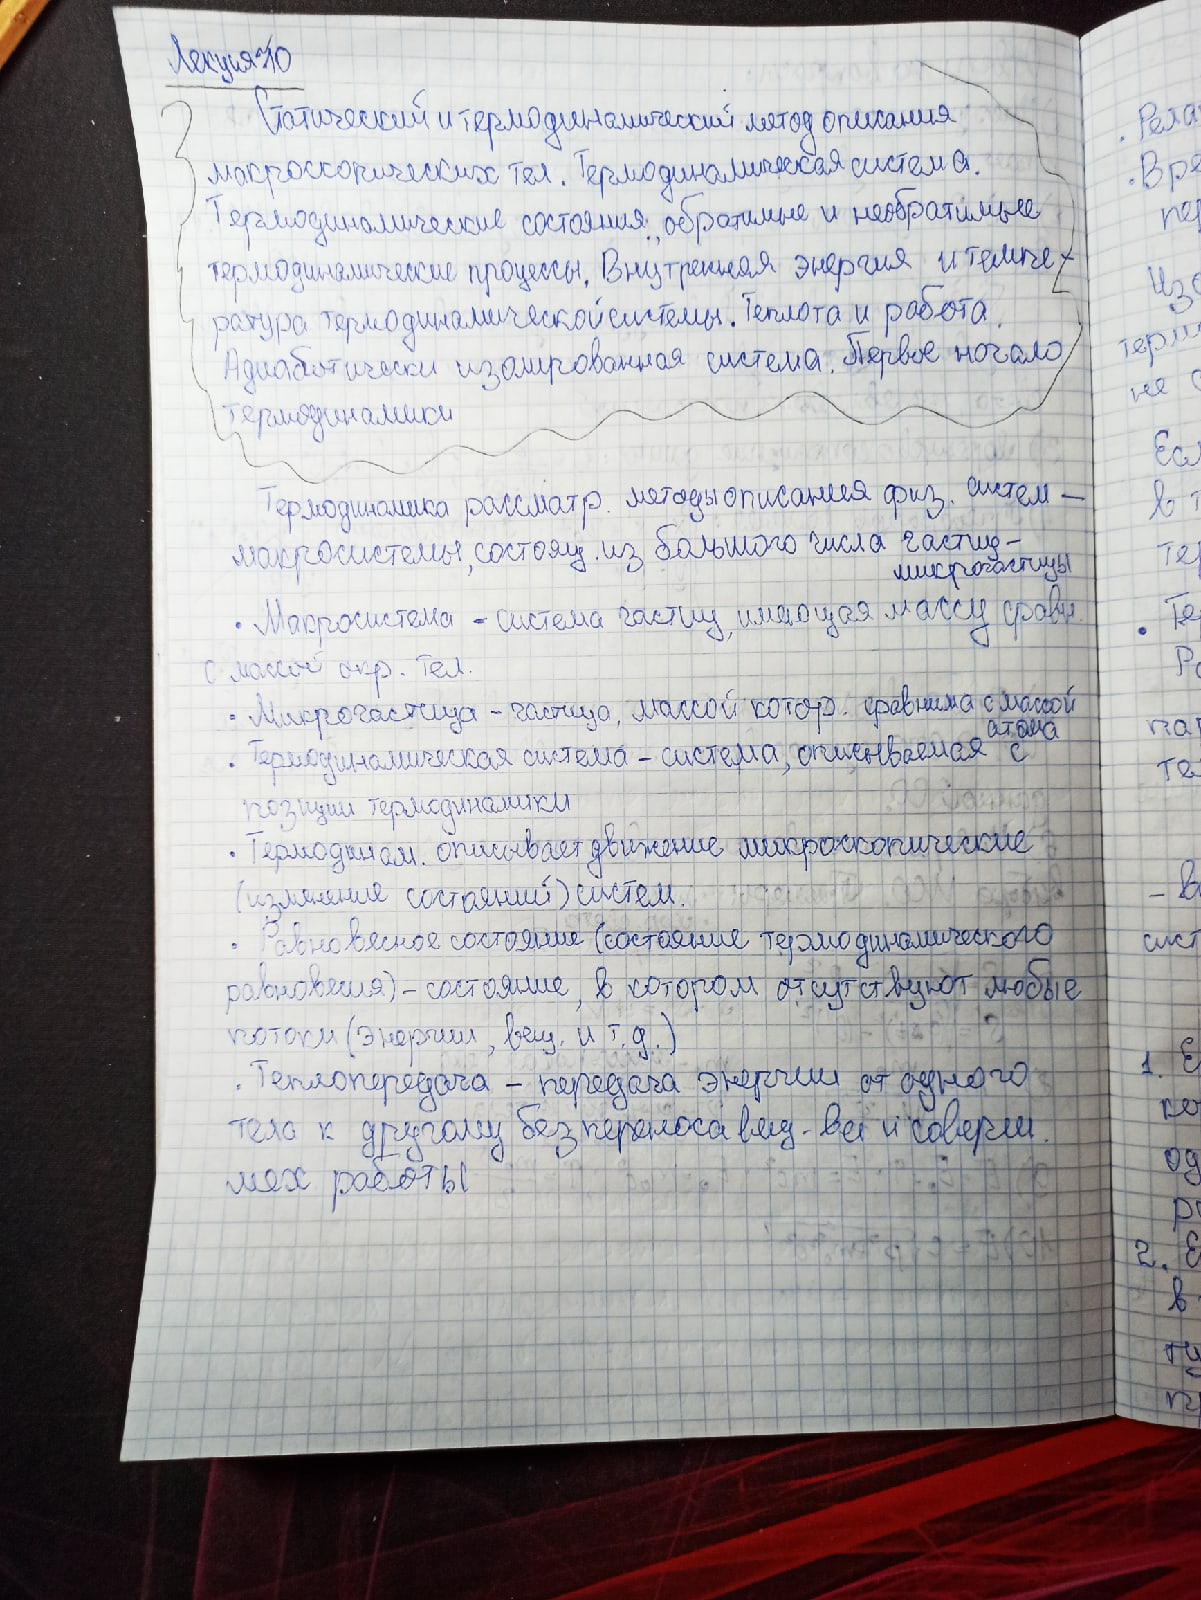 Лекция 10
Статический и термодинамический метод описания
макроскопических тел. Термодинамическая система.
Термодинамические состояния, обратимые и необратимые
термодинамические процессы. Внутренняя энергия и темпе-
ратура термодинамической системы. Теплота и работа.
Адиаботически изолированная система. Первое начало
термодинамики
Термодинамика рассматр. методы описания физ. систем –
макросистемы, состоящ. из большого числа частиц –
микрочастицы
• Макросистема – система частиц, имеющая массу сравн.
с массой окр. тел.
• Микрочастица – частица, массой котор. сравнима с массой
атома
• Термодинамическая система – система, описываемая с
позиции термодинамики
• Термодинам. описывает движение микроскопические
(изменение состояний) систем.
• Равновесное состояние (состояние термодинамического
равновесия) – состояние, в котором отсутствуют любые
потоки (энергии, вещ. и т.д.)
• Теплопередача – передача энергии от одного
тела к другому без переноса вещ-ва и соверш.
мех работы
• Рела
• Вре
пер
Изо
терм
не с
Есл
в т
тер
• Те
Ра
пар
те
– в
сист
1. Е
од
2. Е
в